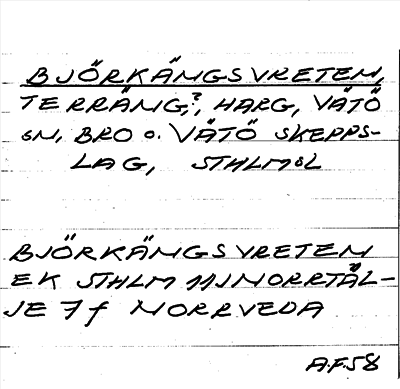 BJÖRKÄNGSVRETEN,
TERRÄNG,?, HARG, VÄTÖ
SN, BRO O. VÄTÖ SKEPPS-
LAG, STHLMSL
BJÖRKÄNGSVRETEN
EK STHLM 11J NORRTÄL-
JE 7f NORRVEDA
A.F.58